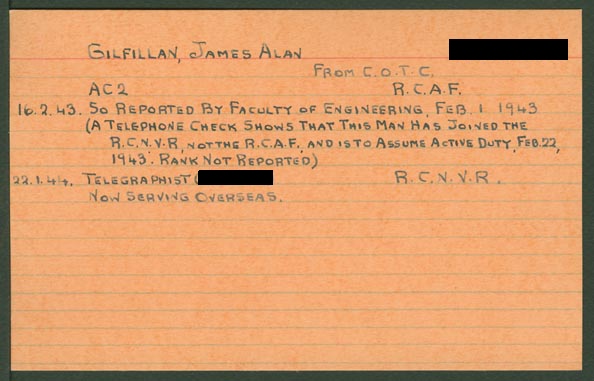 GILFILLAN, JAMES ALAN
FROM C.O.T.C.
AC2 R.C.A.F.
16.2.43. SO REPORTED BY FACULTY OF ENGINEERING, FEB. 1 1943
(A TELEPHONE CHECK SHOWS THAT THIS MAN HAS JOINED THE
R.C.N.V.R, NOT THE R.C.A.F., AND IS TO ASSUME ACTIVE DUTY, FEB. 22,
1943. RANK NOT REPORTED)
22.1.44. TELEGRAPHIST ( R.C.N.V.R.
NOW SERVING OVERSEAS.